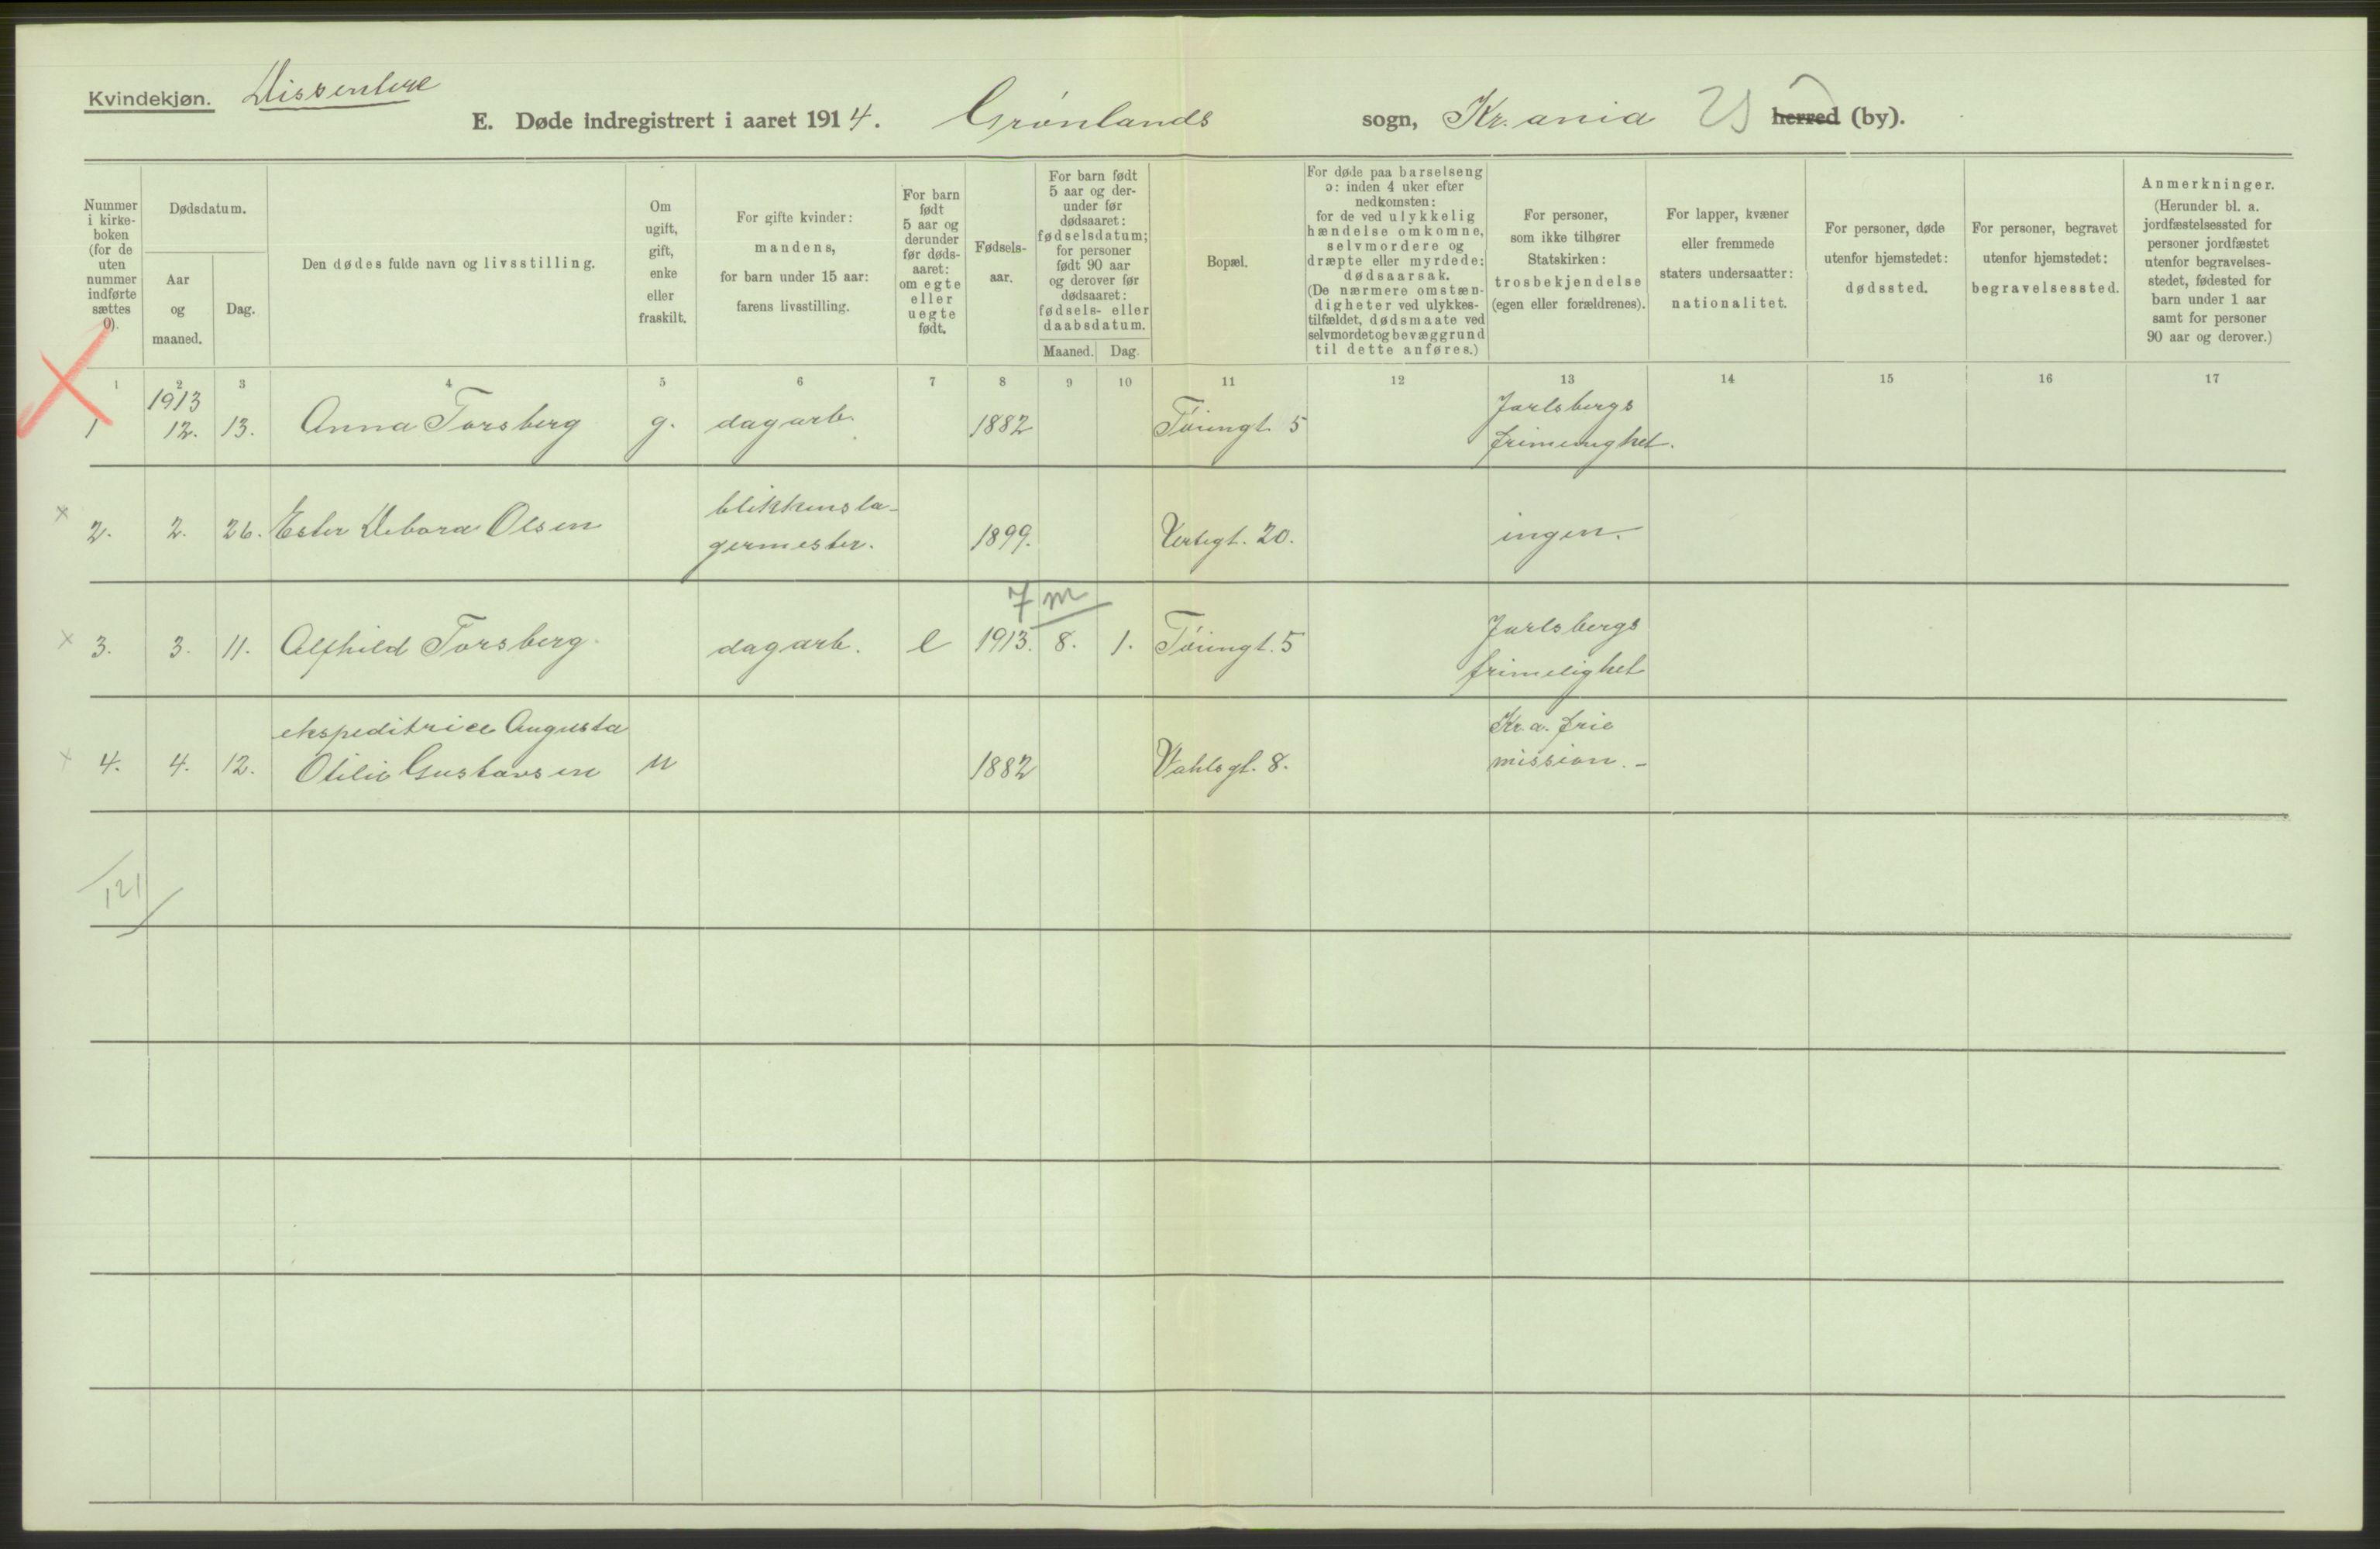 Kvindekjøn. Dissentere
E. Døde indregistrert i aaret 1914. Grønlands sogn, Kr.ania herred (by).
Nummer i kirke-boken (for de uten nummer indførte sættes 0).
Dødsdatum.
Aar og maaned.
Dag.
Den dødes fulde navn og livsstilling.
Om ugift, gift, enke eller fraskilt.
For gifte kvinder: mandens, for barn under 15 aar: farens livsstilling.
For barn født 5 aar og derunder før døds-aaret: om egte eller uegte født.
Fødsels-aar.
For barn født 5 aar og der-under før dødsaaret: fødselsdatum; for personer født 90 aar og derover før dødsaaret: fødsels- eller daabsdatum.
Maaned. Dag.
Bopæl.
For døde paa barselseng ɔ: inden 4 uker efter nedkomsten: for de ved ulykkelig hændelse omkomne, selvmordere og dræpte eller myrdede: dødsaarsak. (De nærmere omstæn-digheter ved ulykkes-tilfældet, dødsmaate ved selvmordet og bevæggrund til dette anføres.)
For personer, som ikke tilhører Statskirken: trosbekjendelse (egen eller forældrenes).
For lapper, kvæner eller fremmede staters undersaatter: nationalitet.
For personer, døde utenfor hjemstedet: dødssted.
For personer, begravet utenfor hjemstedet: begravelsessted.
Anmerkninger. (Herunder bl. a. jordfæstelsessted for personer jordfæstet utenfor begravelses-stedet, fødested for barn under 1 aar samt for personer 90 aar og derover.)
1 2 3 4 5 6 7 8 9 10 11 12 13 14 15 16 17
1913 Jarlsbergs
1 12. 13. Anna Torsberg g. dagarb. 1882 Tøiengt. 5 frimenighet.
blikkensla-
2. 2. 26. Ester Debora Olsen germester. 1899. Urtegt. 20. ingen.
7 m
Jarlsbergs
3. 3. 11. Alfhild Torsberg. dagarb. e 1913. 8. 1. Tøiengt. 5 frimelighet
ekspeditrice Augusta Kr.a. frie
4. 4. 12. Otilie Gustavsen u 1882 Vahlsgt. 8. mission. -
121